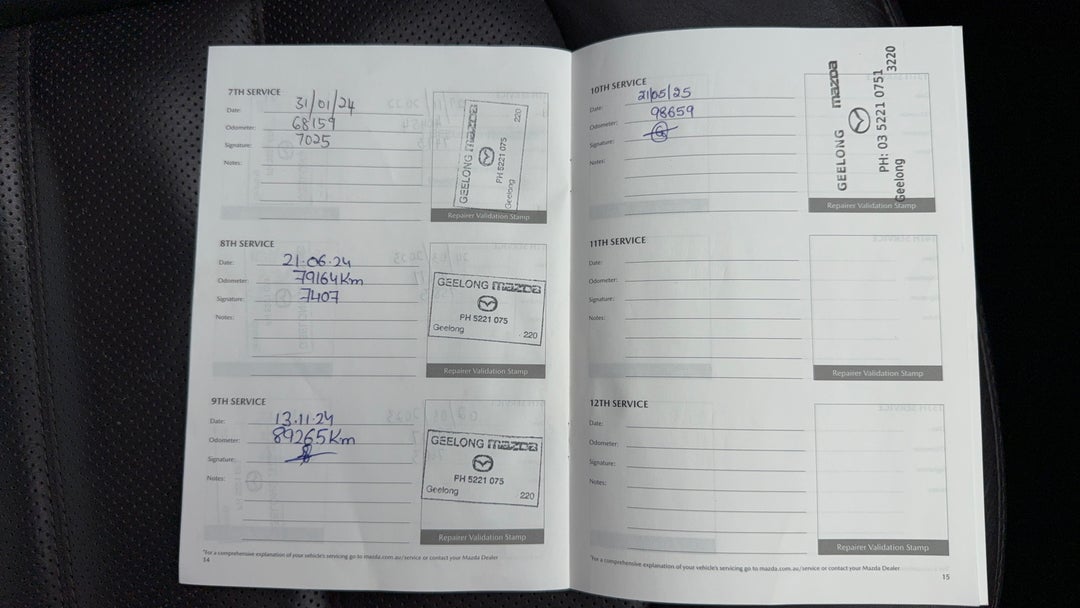 7TH SERVICE
Date: 31/01/24
Odometer: 68159
Signature: 7025
Notes:
GEELONG mazda
PH 5221 075
Geelong 220
Repairer Validation Stamp
8TH SERVICE
Date: 21.06.24
Odometer: 79164Km
Signature: 7407
Notes:
GEELONG mazda
PH 5221 075
Geelong 220
Repairer Validation Stamp
9TH SERVICE
Date: 13.11.24
Odometer: 89265Km
Signature:
Notes:
GEELONG mazda
PH 5221 075
Geelong 220
Repairer Validation Stamp
*For a comprehensive explanation of your vehicle's servicing go to mazda.com.au/service or contact your Mazda Dealer
14
10TH SERVICE
Date: 21/05/25
Odometer: 98659
Signature:
Notes:
GEELONG mazda
PH: 03 5221 0751
Geelong 3220
Repairer Validation Stamp
11TH SERVICE
Date:
Odometer:
Signature:
Notes:
Repairer Validation Stamp
12TH SERVICE
Date:
Odometer:
Signature:
Notes:
Repairer Validation Stamp
*For a comprehensive explanation of your vehicle's servicing go to mazda.com.au/service or contact your Mazda Dealer
15